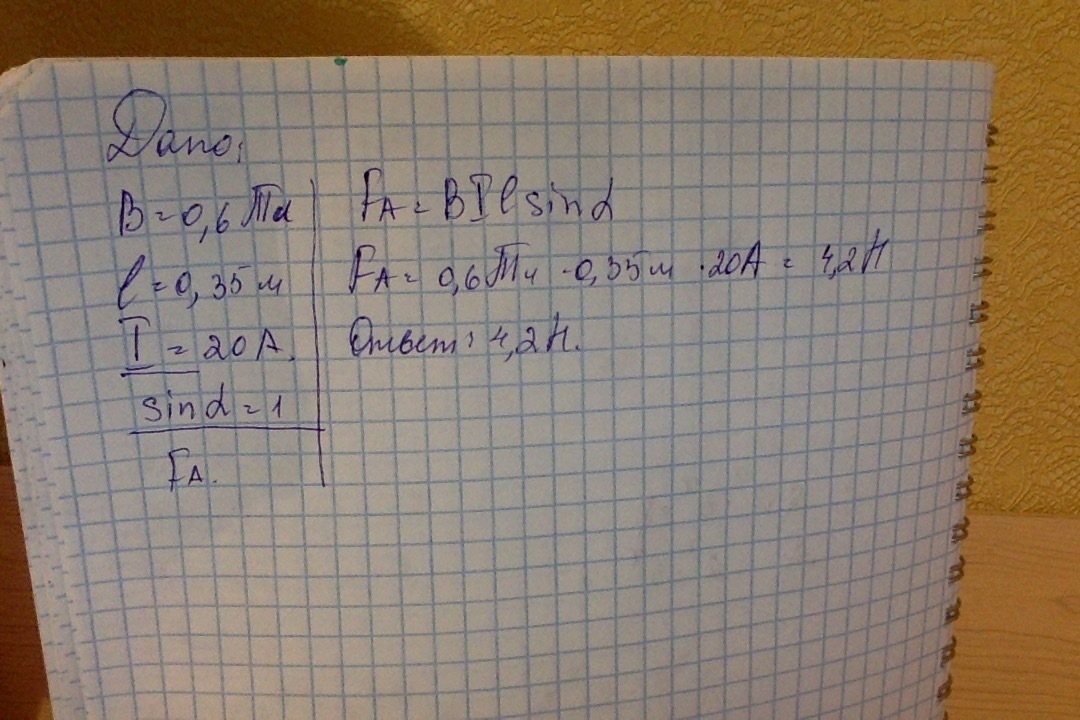 Дано:
B = 0,6 Тл
l = 0,35 м
I = 20 А.
sin α = 1
FА.
FА = B I l sin α
FА = 0,6 Тл · 0,35 м · 20А = 4,2 Н
Ответ: 4,2 Н.